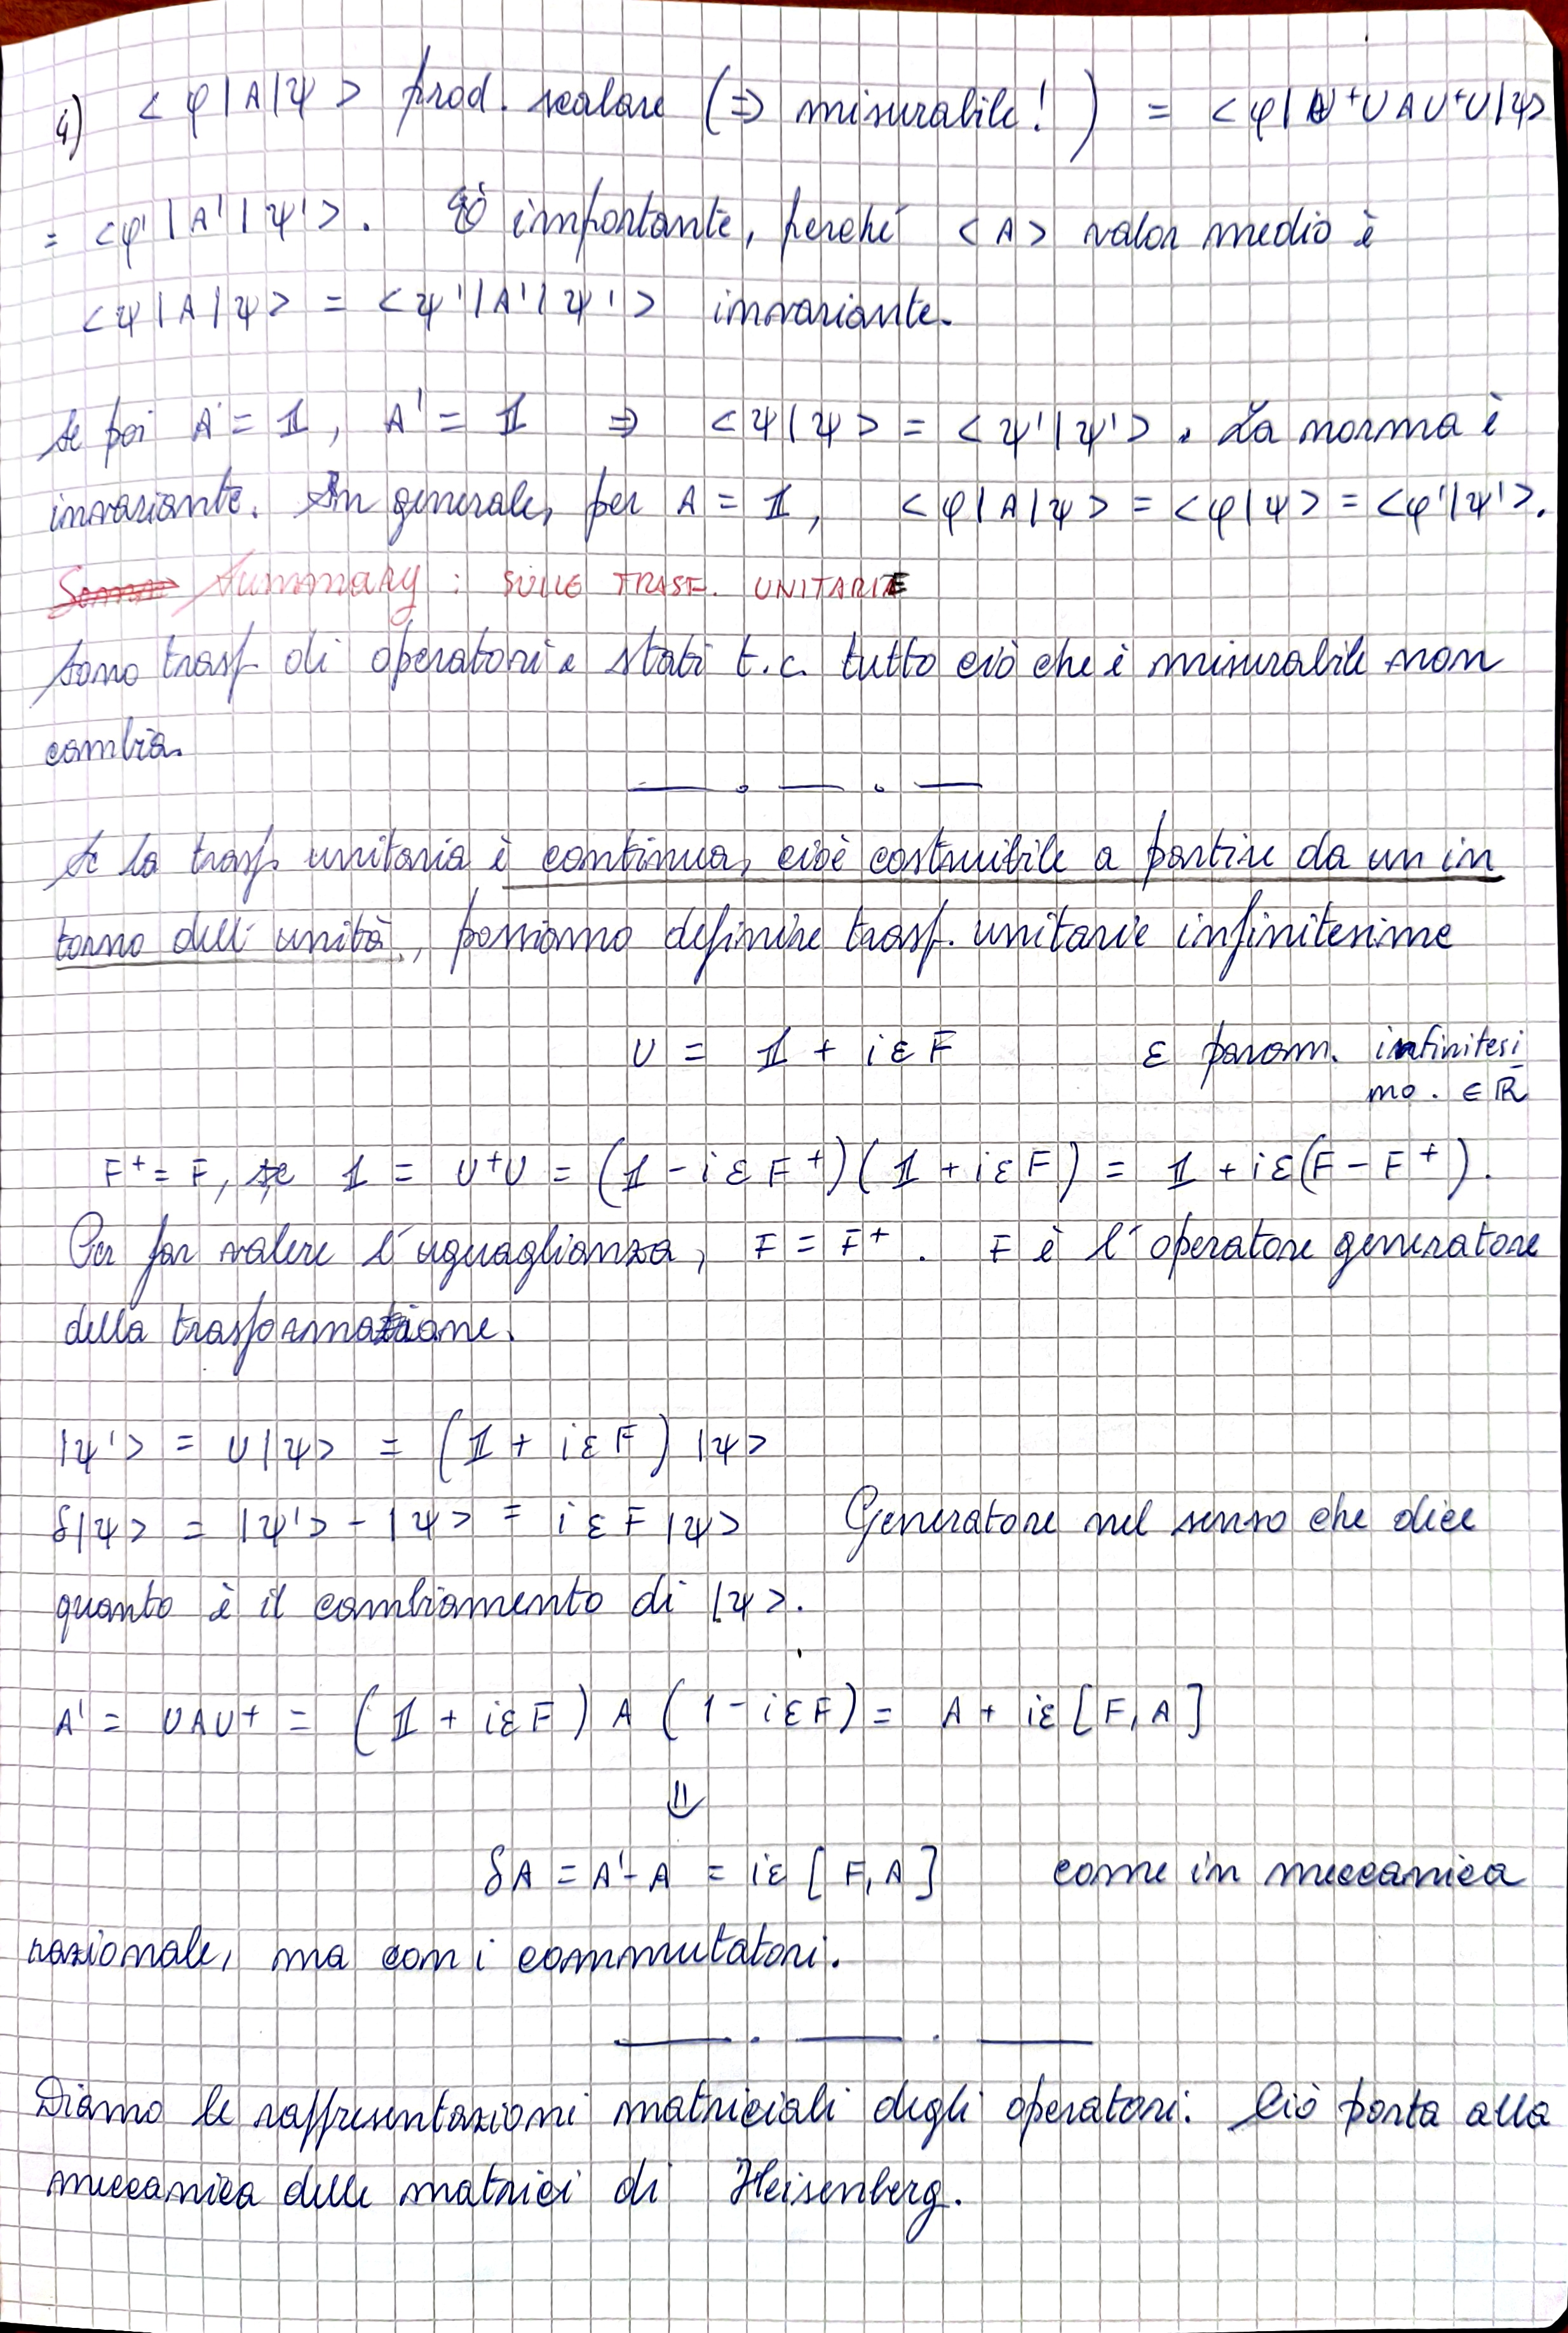 4) <φ|A|ψ> prod. scalare (⇒ misurabile!) = <φ|U⁺UAU⁺U|ψ>
= <φ'|A'|ψ'>. È importante, perché <A> valor medio è
<ψ|A|ψ> = <ψ'|A'|ψ'> invariante.
Se poi A = 𝟙, A' = 𝟙 ⇒ <ψ|ψ> = <ψ'|ψ'>. La norma è
invariante. In generale, per A = 𝟙, <φ|A|ψ> = <φ|ψ> = <φ'|ψ'>.
Summary: SULLE TRASF. UNITARIE
Sono trasf di operatori e stati t.c. tutto ciò che è misurabile non
cambia.
Se la trasf. unitaria è continua, cioè costruibile a partire da un in
torno dell'unità, possiamo definire trasf. unitarie infinitesime
U = 𝟙 + iεF ε param. infinitesi
mo. ∈ ℝ
F⁺ = F, se 𝟙 = U⁺U = (𝟙 - iεF⁺)(𝟙 + iεF) = 𝟙 + iε(F - F⁺).
Per far valere l'uguaglianza, F = F⁺. F è l'operatore generatore
della trasformazione.
|ψ'> = U|ψ> = (𝟙 + iεF)|ψ>
δ|ψ> = |ψ'> - |ψ> = iεF|ψ> Generatore nel senso che dice
quanto è il cambiamento di |ψ>.
A' = UAU⁺ = (𝟙 + iεF) A (1 - iεF) = A + iε[F,A]
⇓
δA = A' - A = iε[F,A] come in meccanica
razionale, ma con i commutatori.
Diamo le rappresentazioni matriciali degli operatori. Ciò porta alla
meccanica delle matrici di Heisenberg.